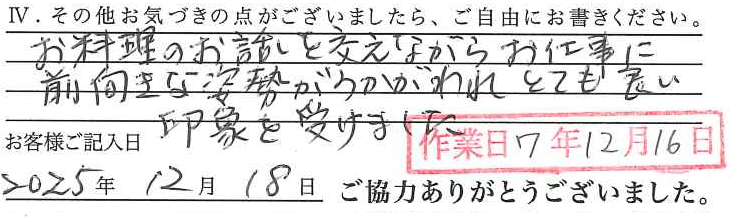 Ⅳ．その他お気づきの点がございましたら、ご自由にお書きください。
お料理のお話しを交えながらお仕事に
前向きな姿勢がうかがわれとても良い
印象を受けました
お客様ご記入日
作業日7年12月16日
2025年 12月 18日 ご協力ありがとうございました。